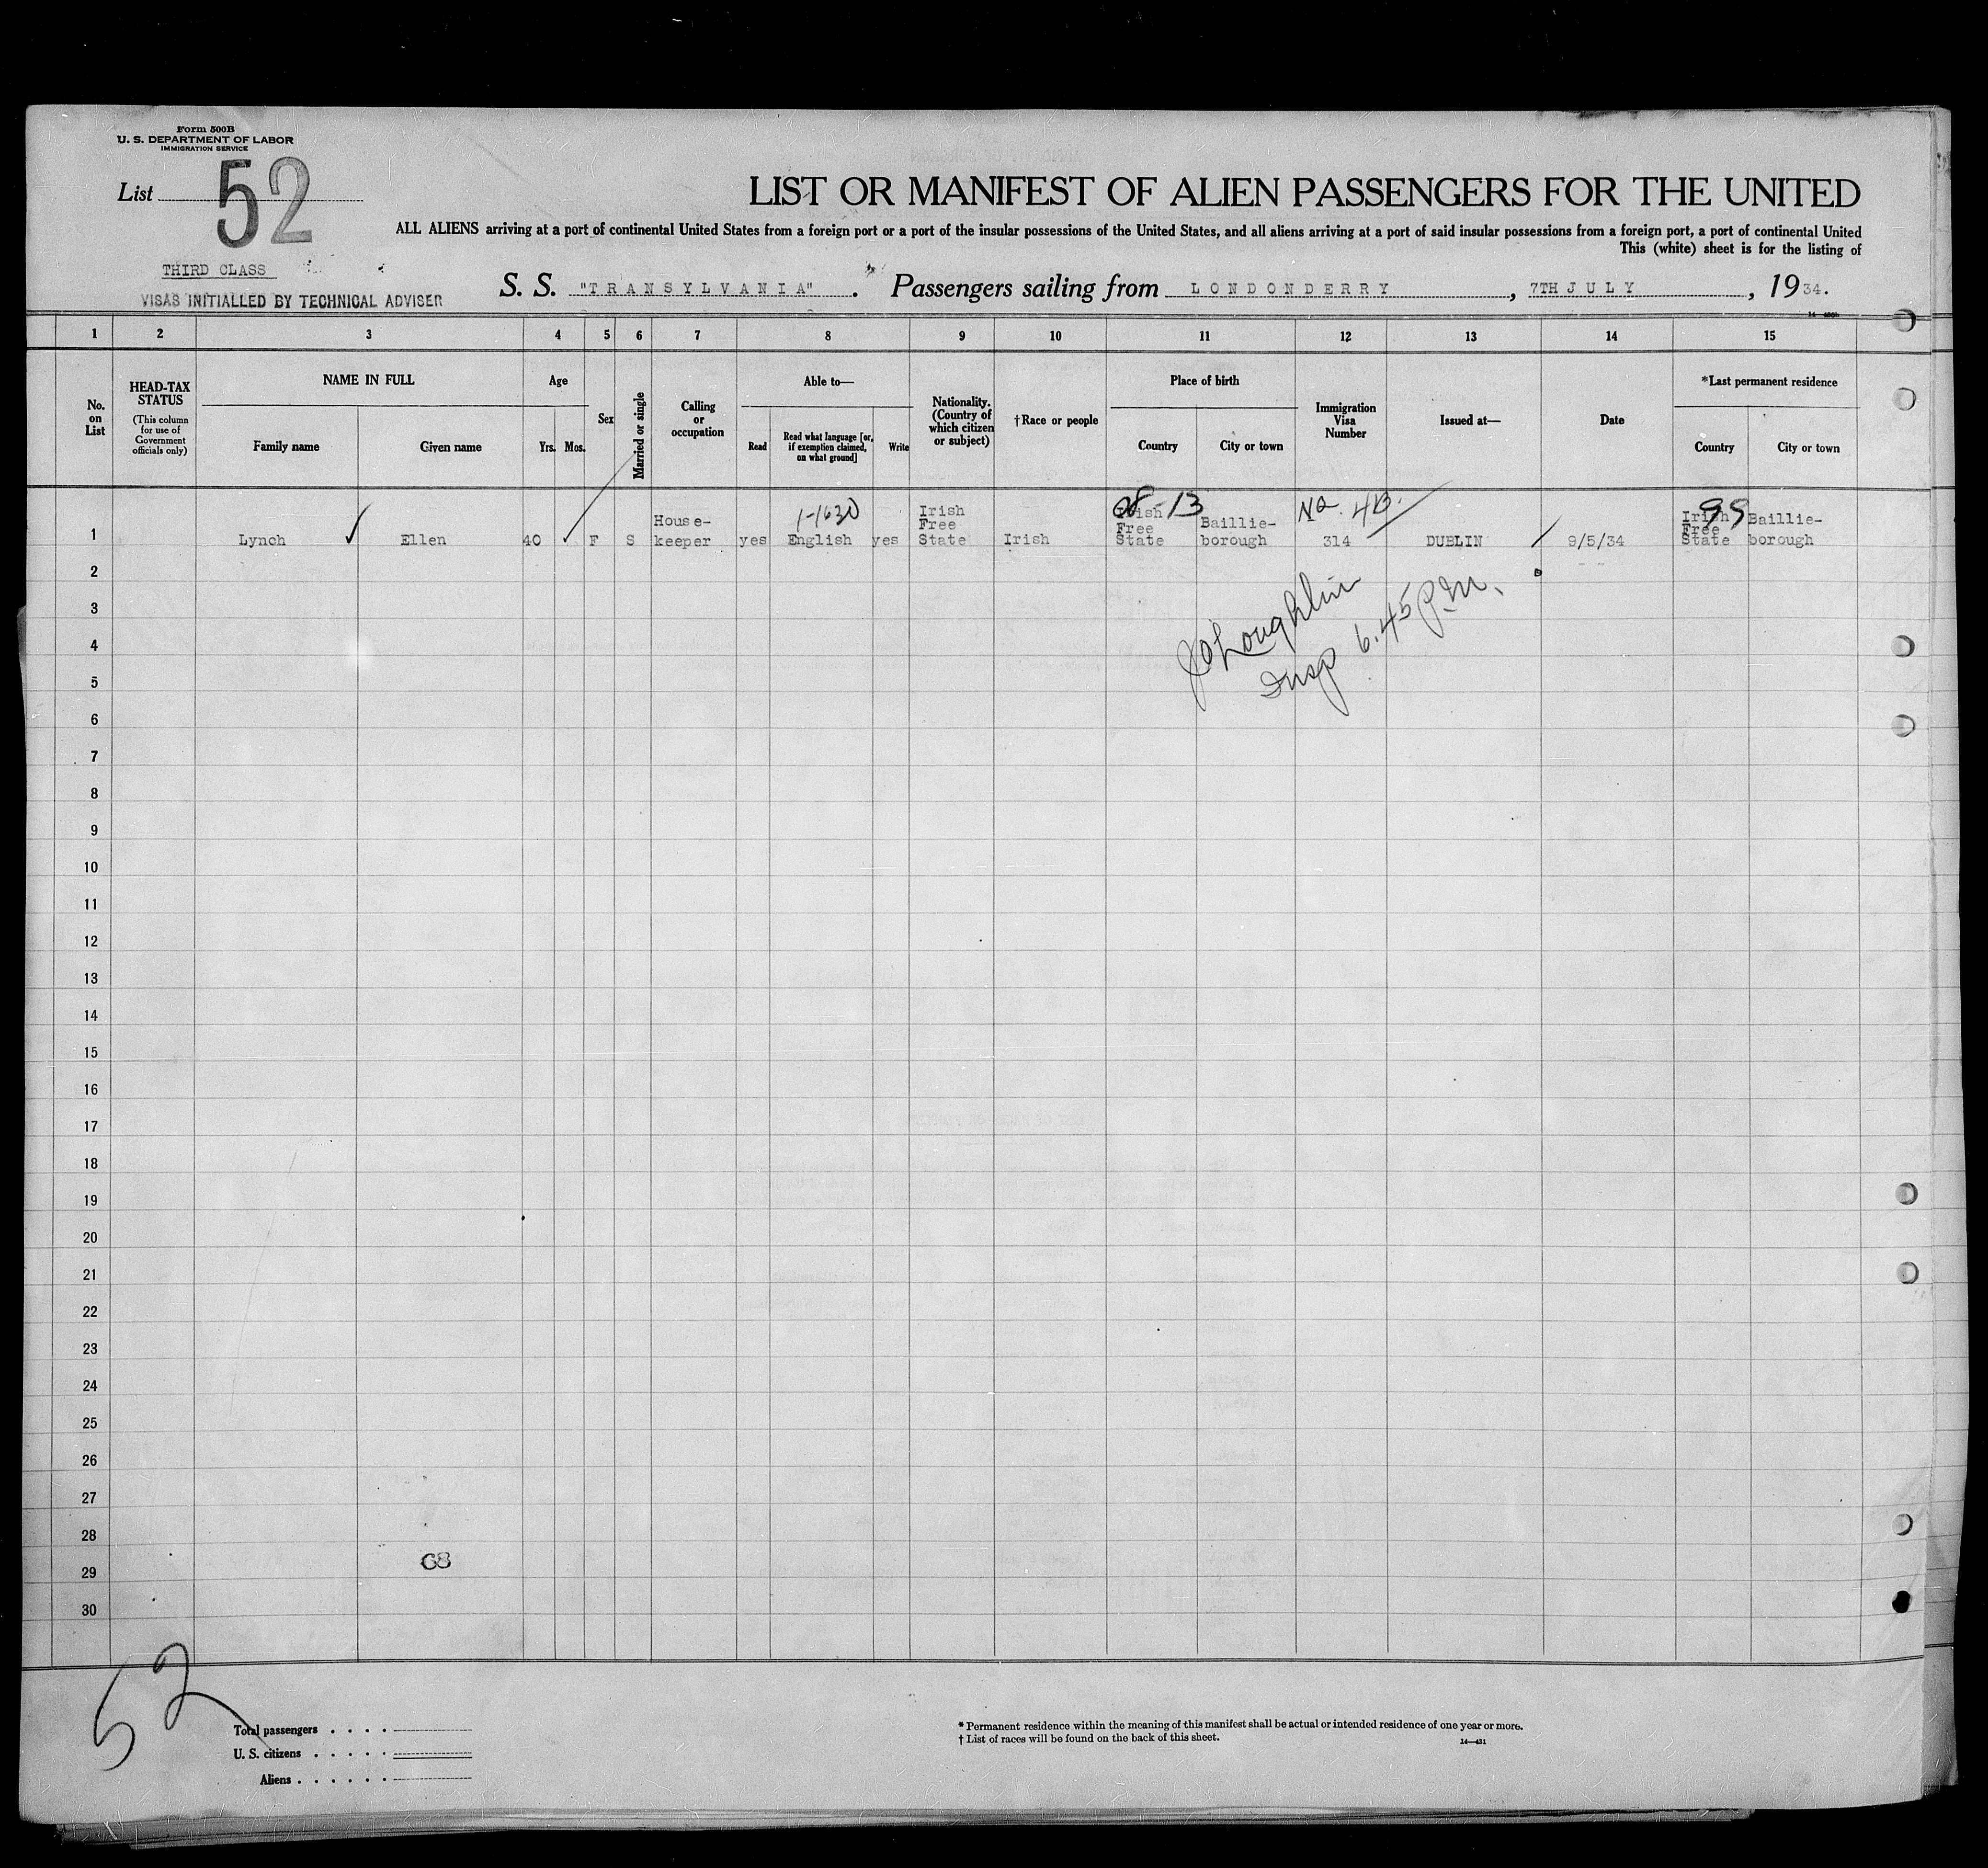 Form 500B
U. S. DEPARTMENT OF LABOR
IMMIGRATION SERVICE
List 52
LIST OR MANIFEST OF ALIEN PASSENGERS FOR THE UNITED
ALL ALIENS arriving at a port of continental United States from a foreign port or a port of the insular possessions of the United States, and all aliens arriving at a port of said insular possessions from a foreign port, a port of continental United
This (white) sheet is for the listing of
THIRD CLASS
VISAS INITIALLED BY TECHNICAL ADVISER
S. S. "TRANSYLVANIA". Passengers sailing from LONDONDERRY, 7TH JULY, 1934.
1 2 3 4 5 6 7 8 9 10 11 12 13 14 15
No. on List
HEAD-TAX STATUS
(This column for use of Government officials only)
NAME IN FULL
Family name Given name
Age
Yrs. Mos.
Sex
Married or single
Calling or occupation
Able to—
Read
Read what language [or, if exemption claimed, on what ground]
Write
Nationality. (Country of which citizen or subject)
†Race or people
Place of birth
Country City or town
Immigration Visa Number
Issued at—
Date
*Last permanent residence
Country City or town
1-1630
-13
NQ. 4B.
99
1 Lynch Ellen 40 F S House-keeper yes English yes Irish Free State Irish Irish Free State Baillie-borough 314 DUBLIN 9/5/34 Irish Free State Baillie-borough
JOLoughlin
Insp 6.45 P.M.
2
3
4
5
6
7
8
9
10
11
12
13
14
15
16
17
18
19
20
21
22
23
24
25
26
27
28
29
30
52
Total passengers . . . .
U. S. citizens . . . . .
Aliens . . . . . .
* Permanent residence within the meaning of this manifest shall be actual or intended residence of one year or more.
† List of races will be found on the back of this sheet.
14—431